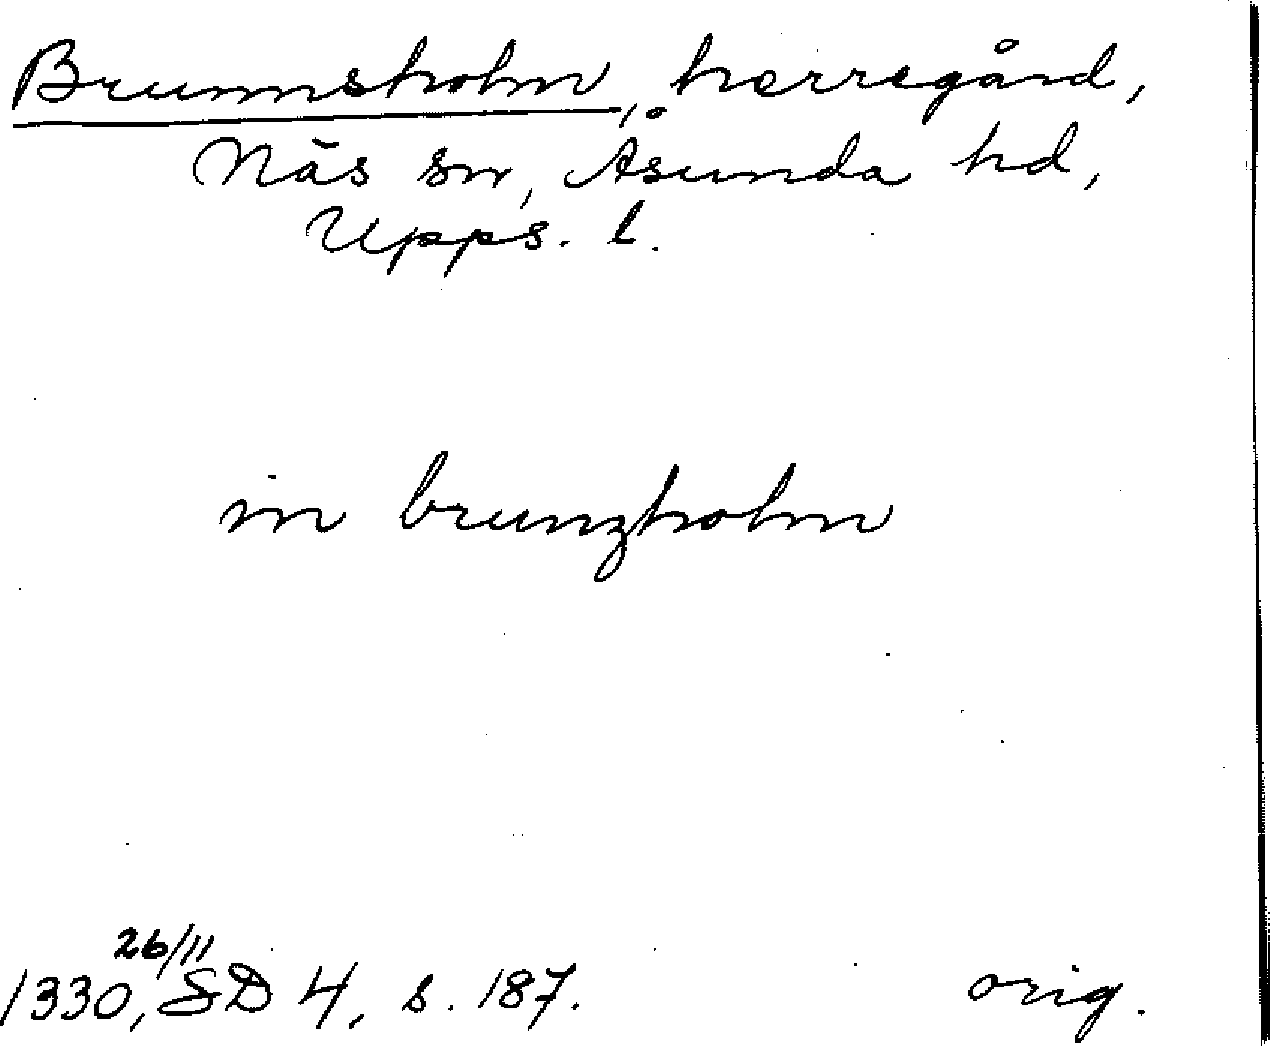 Brunnsholm, herregård,
Näs sn, Åsunda hd,
Upps. l.
in brunzholm
26/11
1330, SD 4, s. 187. orig.